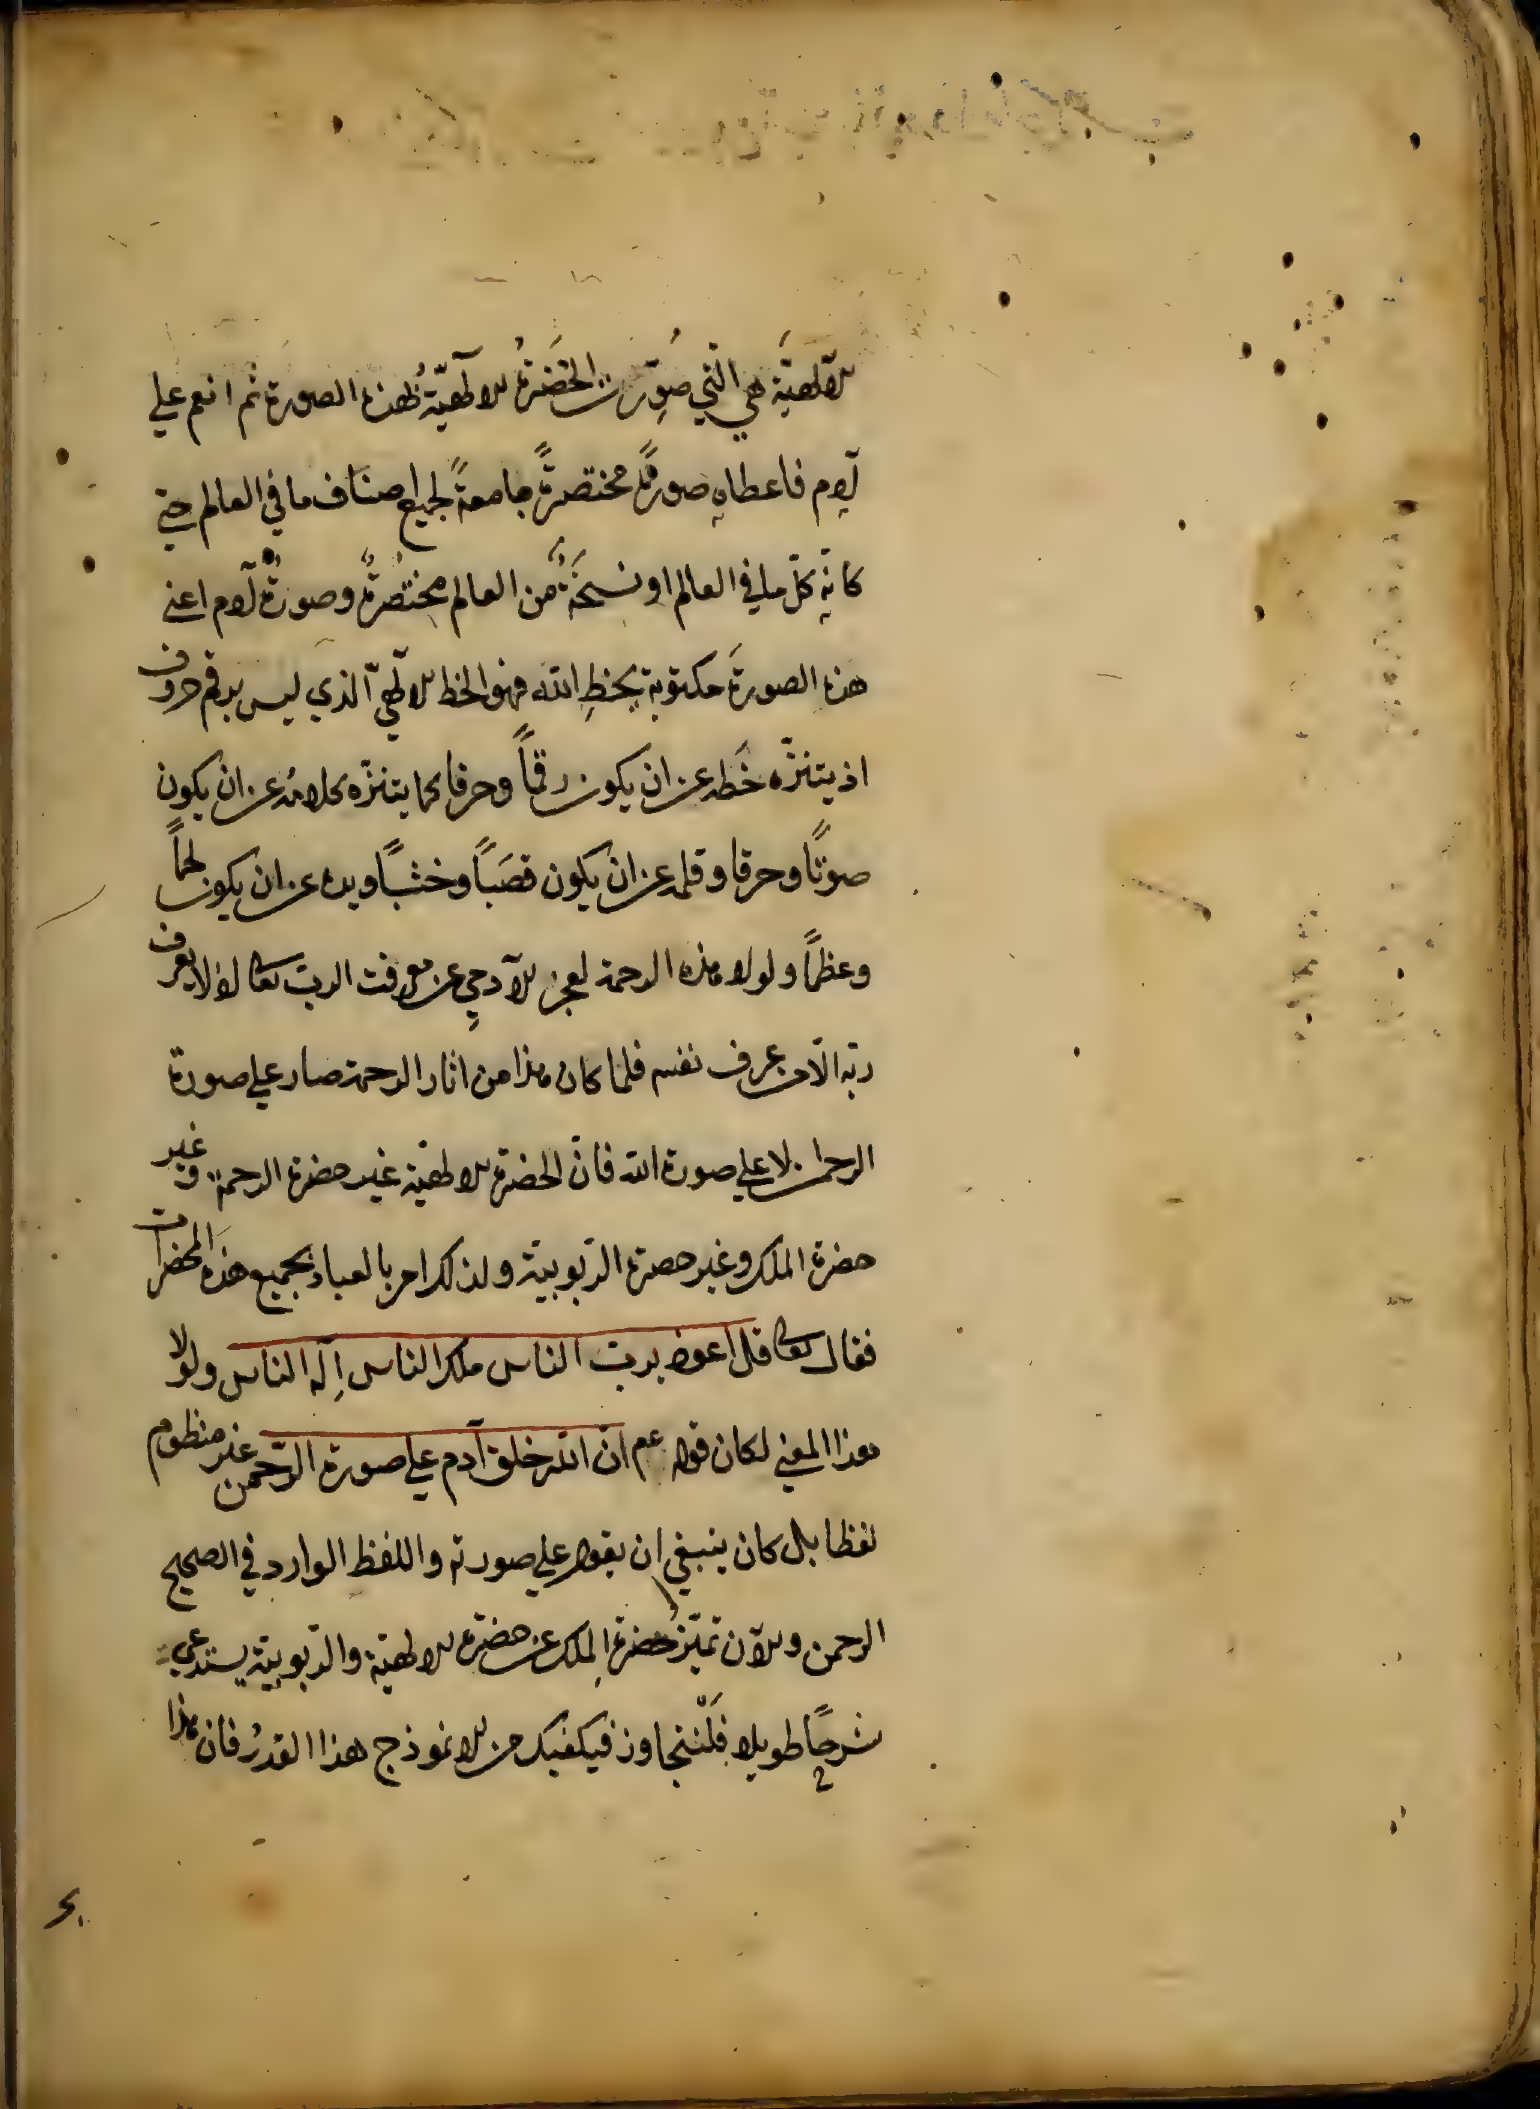 الآلهيّة هي التي صوّرت الحَضرةُ الالٓهيّة بهذه الصورة ثم انعم علي
آدم فاعطاه صورةً مختصرةً جامعةً لجميع اصناف ما في العالم حتي
كانه كلّ ما في العالم او نسخَةٌ من العالم مختصرةٌ وصورةُ آدم اعني
هذه الصورةَ مكتوبة بخطِ الله فهو الخط الالٓهيّ الذي ليس برقم حروف
اذ يتنزّه خَطه عن ان يكون رقمًا وحرفا كما يتنزّه كلامُه عن ان يكون
صوتًا وحرفا وقلمه عن ان يكون قصَبًا وخشبًا ويده عن ان يكون لحمًا
وعظمًا ولولا هذه الرحمة لعجز الآدمي عن معرفت الربّ تعالى اذ لا يعرف
ربّه الّا من عرف نفسه فلما كان هذا من اثار الرحمة صار علي صورة
الرحمان لا علي صورة الله فانّ الحضرة الالهيّة غير حضرة الرحمة وغير
حضرة الملك وغير حضرة الرّبوبيّة ولذلك امر بالعباد بجميع هذه الحضرات
فقال تعالى قل اعوذ بربّ الناس ملك الناس اِلٓه الناس ولولا
هذا المعني لكان قوله عم انّ الله خلق آدم علي صورة الرّحمن غير منظوم
لفظا بل كان ينبغي ان يقول علي صورته واللفظ الوارد في الصحيح
الرحمن والآن تميّزُ حضرة الملك عن حضرة الالهيّة والرّبوبيّة يستدعي
شرحًا طويلا فلْنتجاوز فيكفيك من الانموذج هذا القدرُ فان هذا